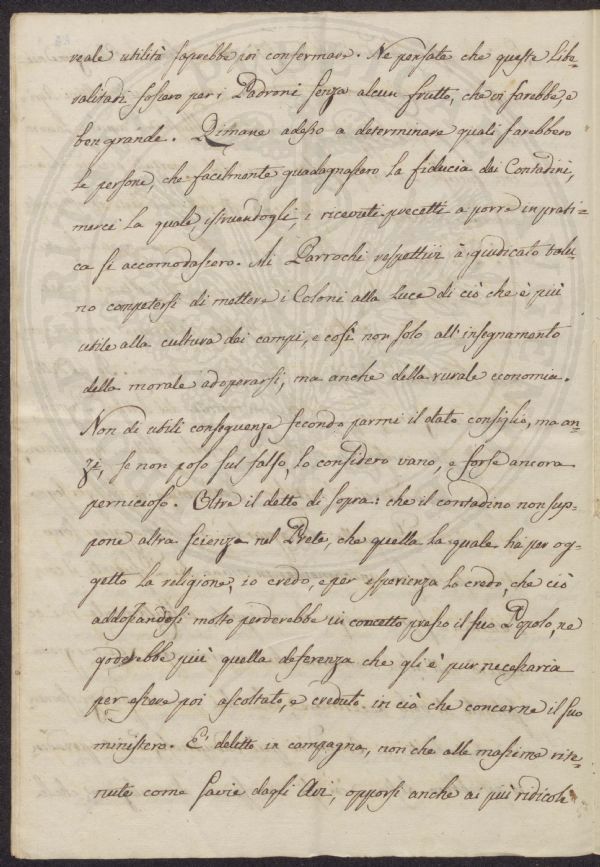 reale utilità saprebbe poi confermare. Ne pensate che queste Libe-
ralitadi fossero per i Padroni senza alcun frutto, che vi sarebbe, e
ben grande. Rimane adesso a determinare quali sarebbero
le persone, che facilmente guadagnassero la fiducia dai Contadini,
mercè la quale, istruendogli, i ricevuti precetti a porre in prati-
ca si accomodassero. Ai Parrochi respettivi à giudicato talu-
no competersi di mettere i Coloni alla Luce di ciò che è più
utile alla cultura dai campi, e così non solo all'insegnamento
della morale adoperarsi, ma anche della rurale economia.
Non di utili conseguenze secondo parmi il dato consiglio, ma an-
zi, se non poso sul falso, lo considero vano, e forse ancora
pernicioso. Oltre il detto di sopra: che il contadino non sup-
pone altra scienza nel Prete, che quella la quale ha per og-
getto la religione, io credo, e per esperienza lo credo, che ciò
addossandosi molto perderebbe in concetto presso il suo Popolo, ne
goderebbe più quella deferenza che gli è pur necessaria
per essere poi ascoltato, e creduto in ciò che concerne il suo
ministero. E' delitto in campagna, non che alle massime rite-
nute come savie dagli Avi, opporsi anche ai più ridicoli